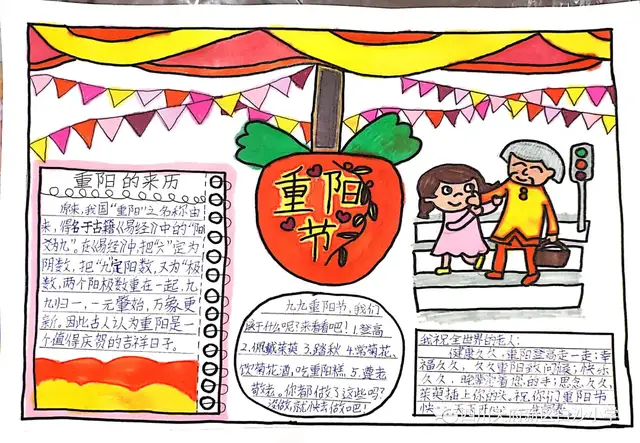 重阳节
重阳的来历
原来,我国"重阳"之名称由
来,得名于古籍《易经》中的"阳
爻为九"。在《易经》中,把"六"定为
阴数,把"九"定阳数,又为"极
数,两个阳极数重在一起,九
九归一,一元肇始,万象更
新。因此古人认为重阳是一
个值得庆贺的吉祥日子。
九九重阳节,我们
该干什么呢?来看看吧!1.登高
2.佩戴茱萸 3.踏秋 4.赏菊花、
饮菊花酒,吃重阳糕 5.尊老
敬老。你都做了这些吗?
没做,就快去做吧!
我祝全世界的老人:
健康久久,重阳登高走一走;幸
福久久,久久重阳致问候;快乐
久久,
的手;思念久久,
茱萸插上你的头。祝,你们重阳节
快